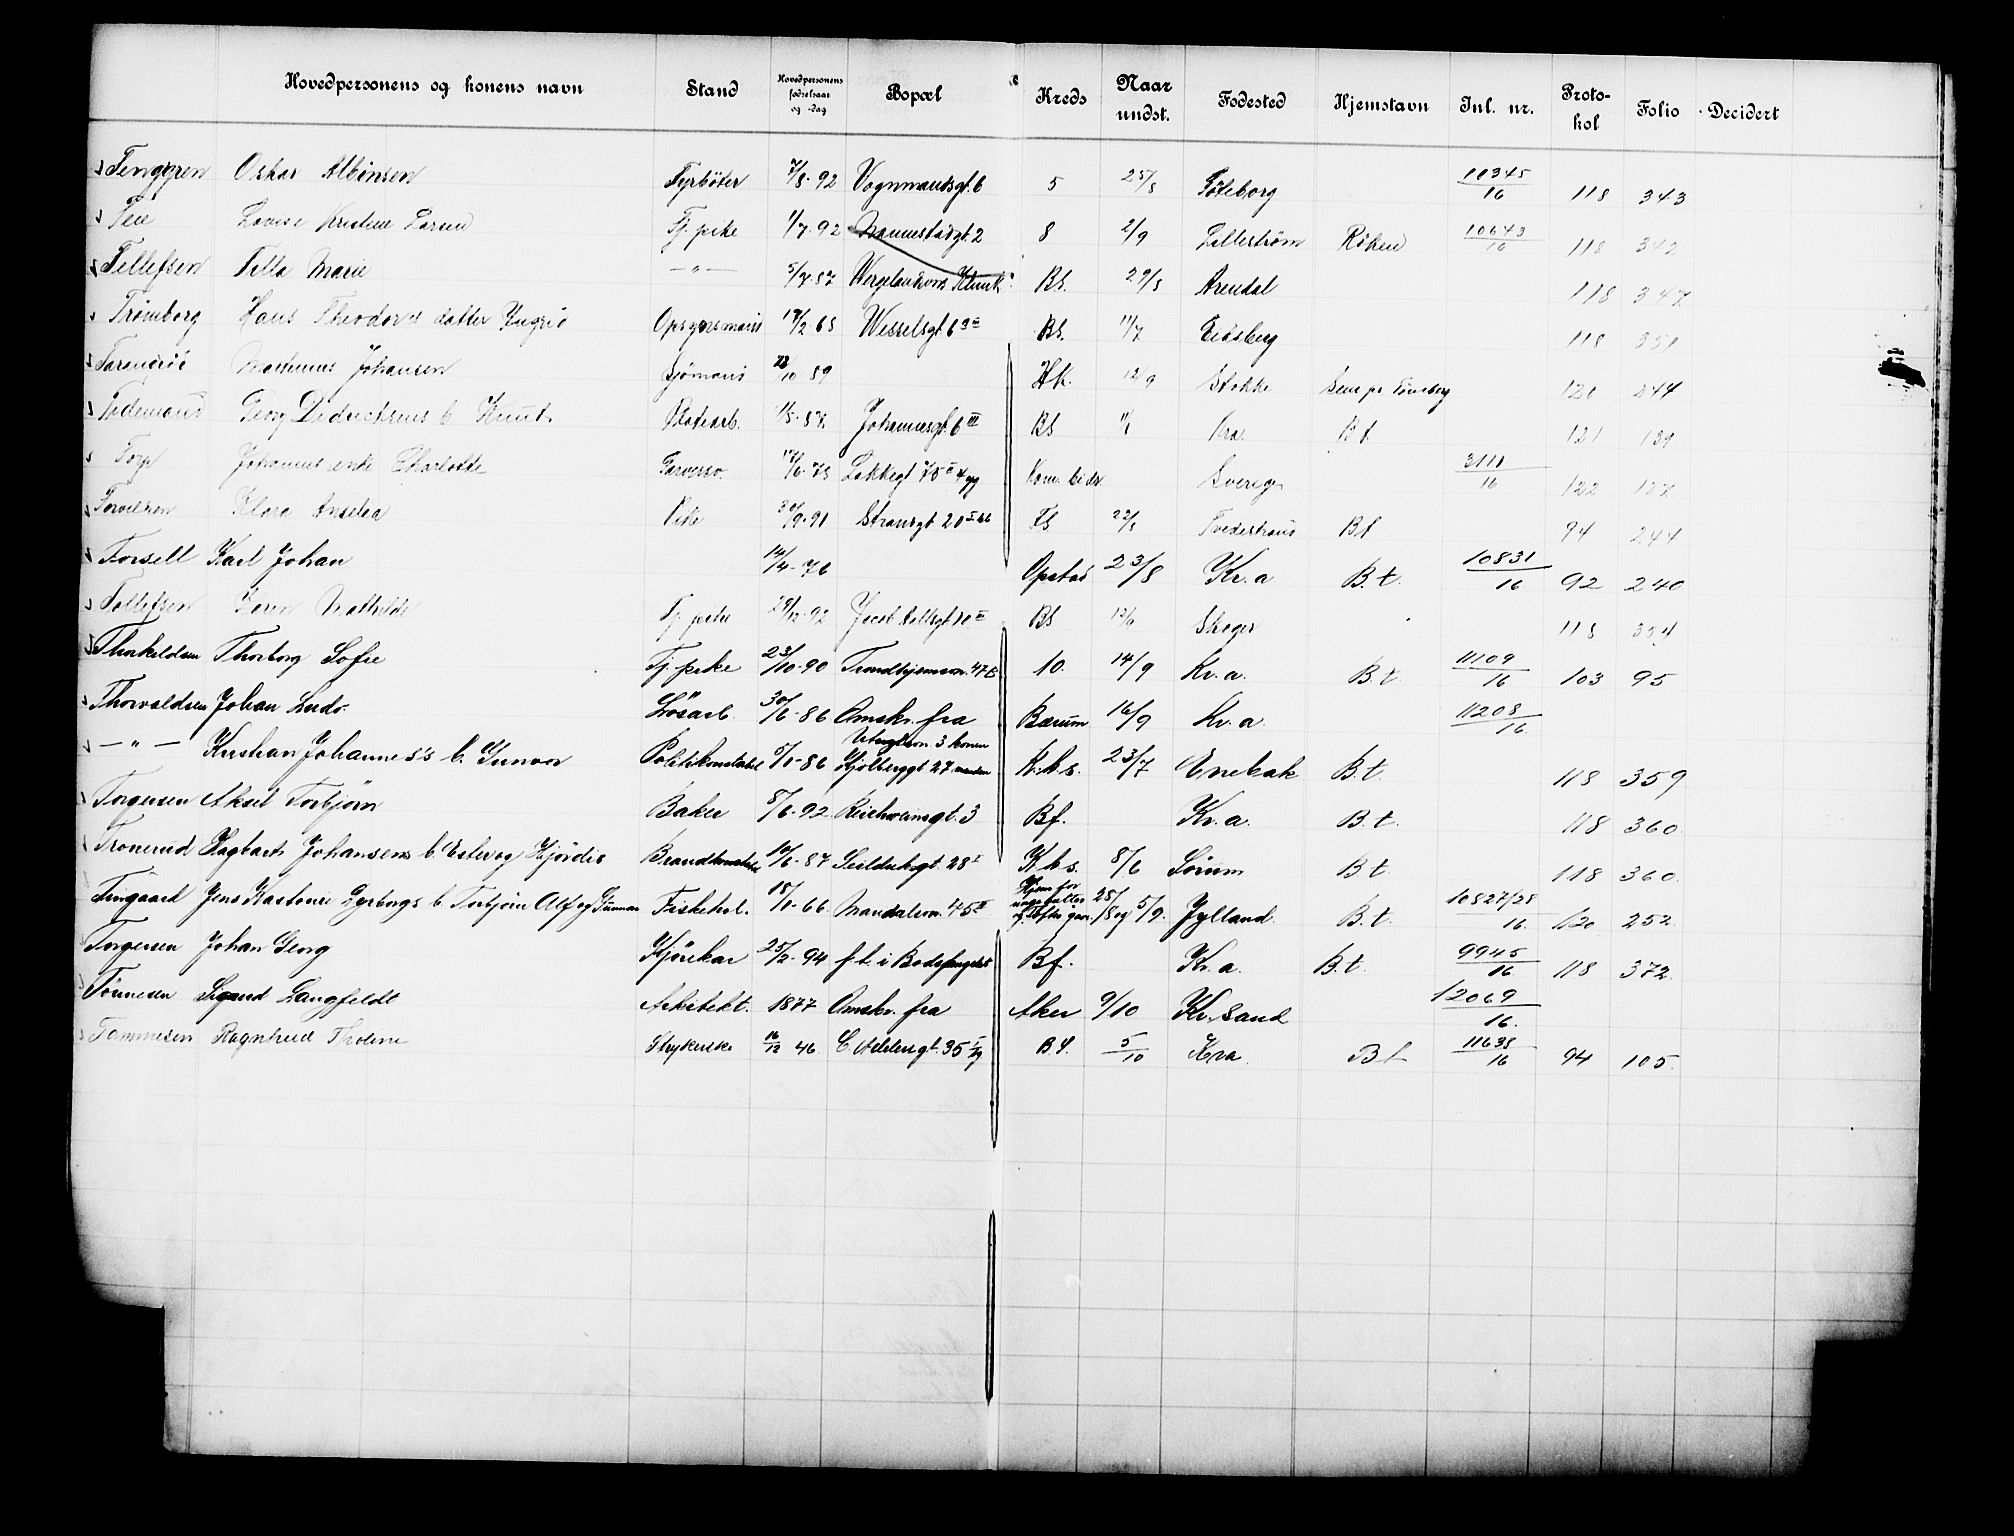 Hovedpersonens og konens navn Stand Hovedpersonens fødselsaar og -dag Bopæl Kreds Naar undst. Fødested Hjemstavn Inl. nr. Proto-kol Folio Decidert
Tenggren Oskar Albinsen Fyrböter 7/8-92 Vognmandsgt. 6 5 25/8 Göteborg 10345/16 118 343
Lovise Kristine Larsen Tj. pike 1/7 92 Mannestadgt. 2 8 2/9 Lilleström Röken 10643/16 118 342
Tellefsen Tilla Marie —"— 5/7 87 Bs. 29/8 Arendal 118 347
Trömborg Hans Theodors datter Ingrid Opsynsmand 17/2 65 Wesselsgt. 6 Bs. 11/7 Eidsberg 118 351
Mathinius Johansen Sjömand /10 89 Hk. 12/9 Stokke Sem pr Tönsberg 120 244
Tidemand Georg Didrichsens b. Knut 1/5-87 Johannesgt. 6 III Bs Kra. B.t. 121 139
Torp Johannes enke Charlotte 17/6-75 Lakkegt 75 Kom. bidr. Sverige 3110/16 122 127
Klara Anselea Pike 30/9-91 Strandgt 20 Fs 22/8 Tvedestrand Bt 94 244
Torsell Karl Johan 14/4-76 Opstad 23/8 Kr.a B.t. 10831/16 92 240
Tollefsen Karen Mathilde Tj. pike 29/12-92 Jacob Aallsgt 10 III Bs 13/6 Skoger 118 354
Thorkildsen Thorborg Sofie Tj. pike 23/10-90 Trondhjemsvn. 47 10. 14/9 Kr.a. B.t. 11109/16 103 95
Thorvaldsen Johan Ludv. Lösarb. 30/6-86 Omskr. fra Bærum 16/9 Kr.a. 11208/16
—"— Kristian Johannes's b. Gunvor Politikonstabel /1-86 3 konen Kjölberggt 27 manden K.k.s. 23/7 Enebak B.t. 118 359
Torgersen Aksel Torbjörn Baker 8/6-92 Reichweinsgt. 3 Bf. Kr.a. B.t. 118 360.
Tronerud Dagbart Johansens b. Ester og Hjördis Brandkonstabel 10/6-87 Seildukgt. 28 I K.k.s. 8/6 Sörum B.t 118 360.
Tingaard Jens Kastonie Lyrborgs b. Torbjörn Alf og Gunnar Fiskehdl. 18/1-66. Mandalsvn. 45 II Hjem for 28/8 og 5/9. Jylland. B.t. 10827/28/16. 120 252.
Torgersen Johan Georg Kjörekar 25/2-94 f.t. i Bodsfengslet Bf. Kr.a. B.t. 9945/16 118 372.
Tönnesen Sigurd Langfeldt Arkitekt. 1877 Omskr. fra Aker 9/10 Kr.sand 12069/16.
Tommesen Ragnhild Tholine Strykerske 16/12 46 C. Adelersgt. 35 B.f. 5/10 Kra. Bt 11638/16 94 105.